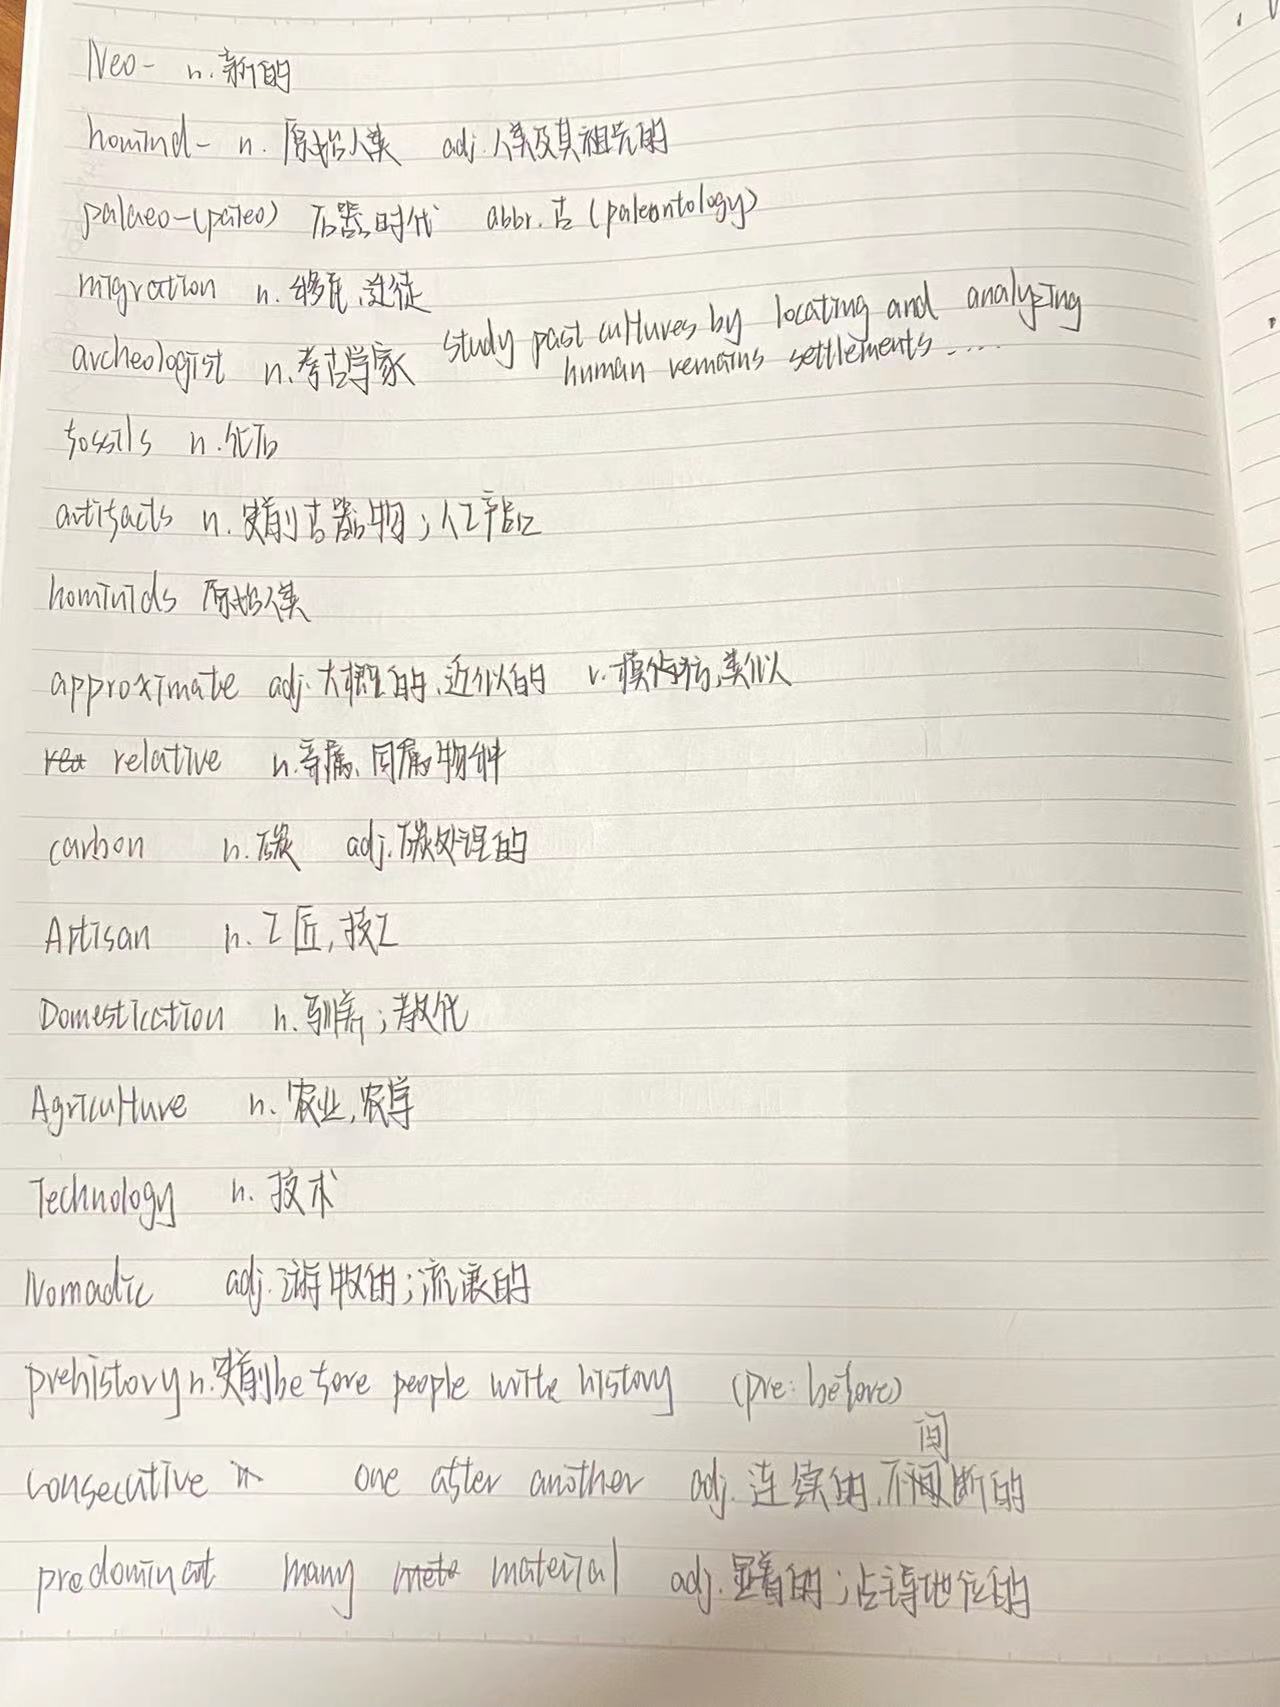 Neo- n. 新的
hominid- n. 原始人类 adj. 人类及其祖先的
palaeo-(paleo) 石器时代 abbr. 古 (paleontology)
migration n. 移民、迁徒
archeologist n. 考古学家 study past cultures by locating and analyzing
human remains settlements .....
fossils n. 化石
artifacts n. 史前古器物；人工产品
hominids 原始人类
approximate adj. 大概的、近似的 v. 模仿,类似
relative n. 亲属、同属物种
carbon n. 碳 adj. 碳处理的
Artisan n. 工匠,技工
Domestication n. 驯养；教化
Agriculture n. 农业,农学
Technology n. 技术
Nomadic adj. 游牧的；流浪的
prehistory n. 史前 before people write history (pre: before)
consecutive one after another adj. 连续的、不间断的
predominat many material adj. 显著的；占主导地位的